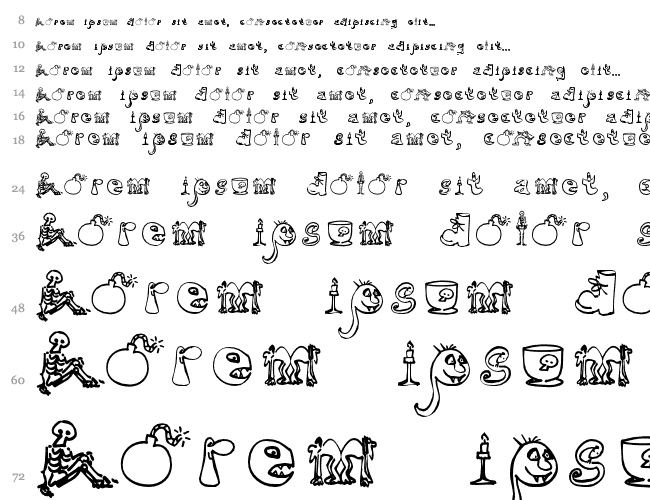 8 Lorem ipsum dolor sit amet, consectetuer adipiscing elit...
10 Lorem ipsum dolor sit amet, consectetuer adipiscing elit...
12 Lorem ipsum dolor sit amet, consectetuer adipiscing elit...
14 Lorem ipsum dolor sit amet, consectetuer adipisci
16 Lorem ipsum dolor sit amet, consectetuer adip
18 Lorem ipsum dolor sit amet, consectetue
24 Lorem ipsum dolor sit amet, c
36 Lorem ipsum dolor s
48 Lorem ipsum do
60 Lorem ipsum
72 Lorem ipsu